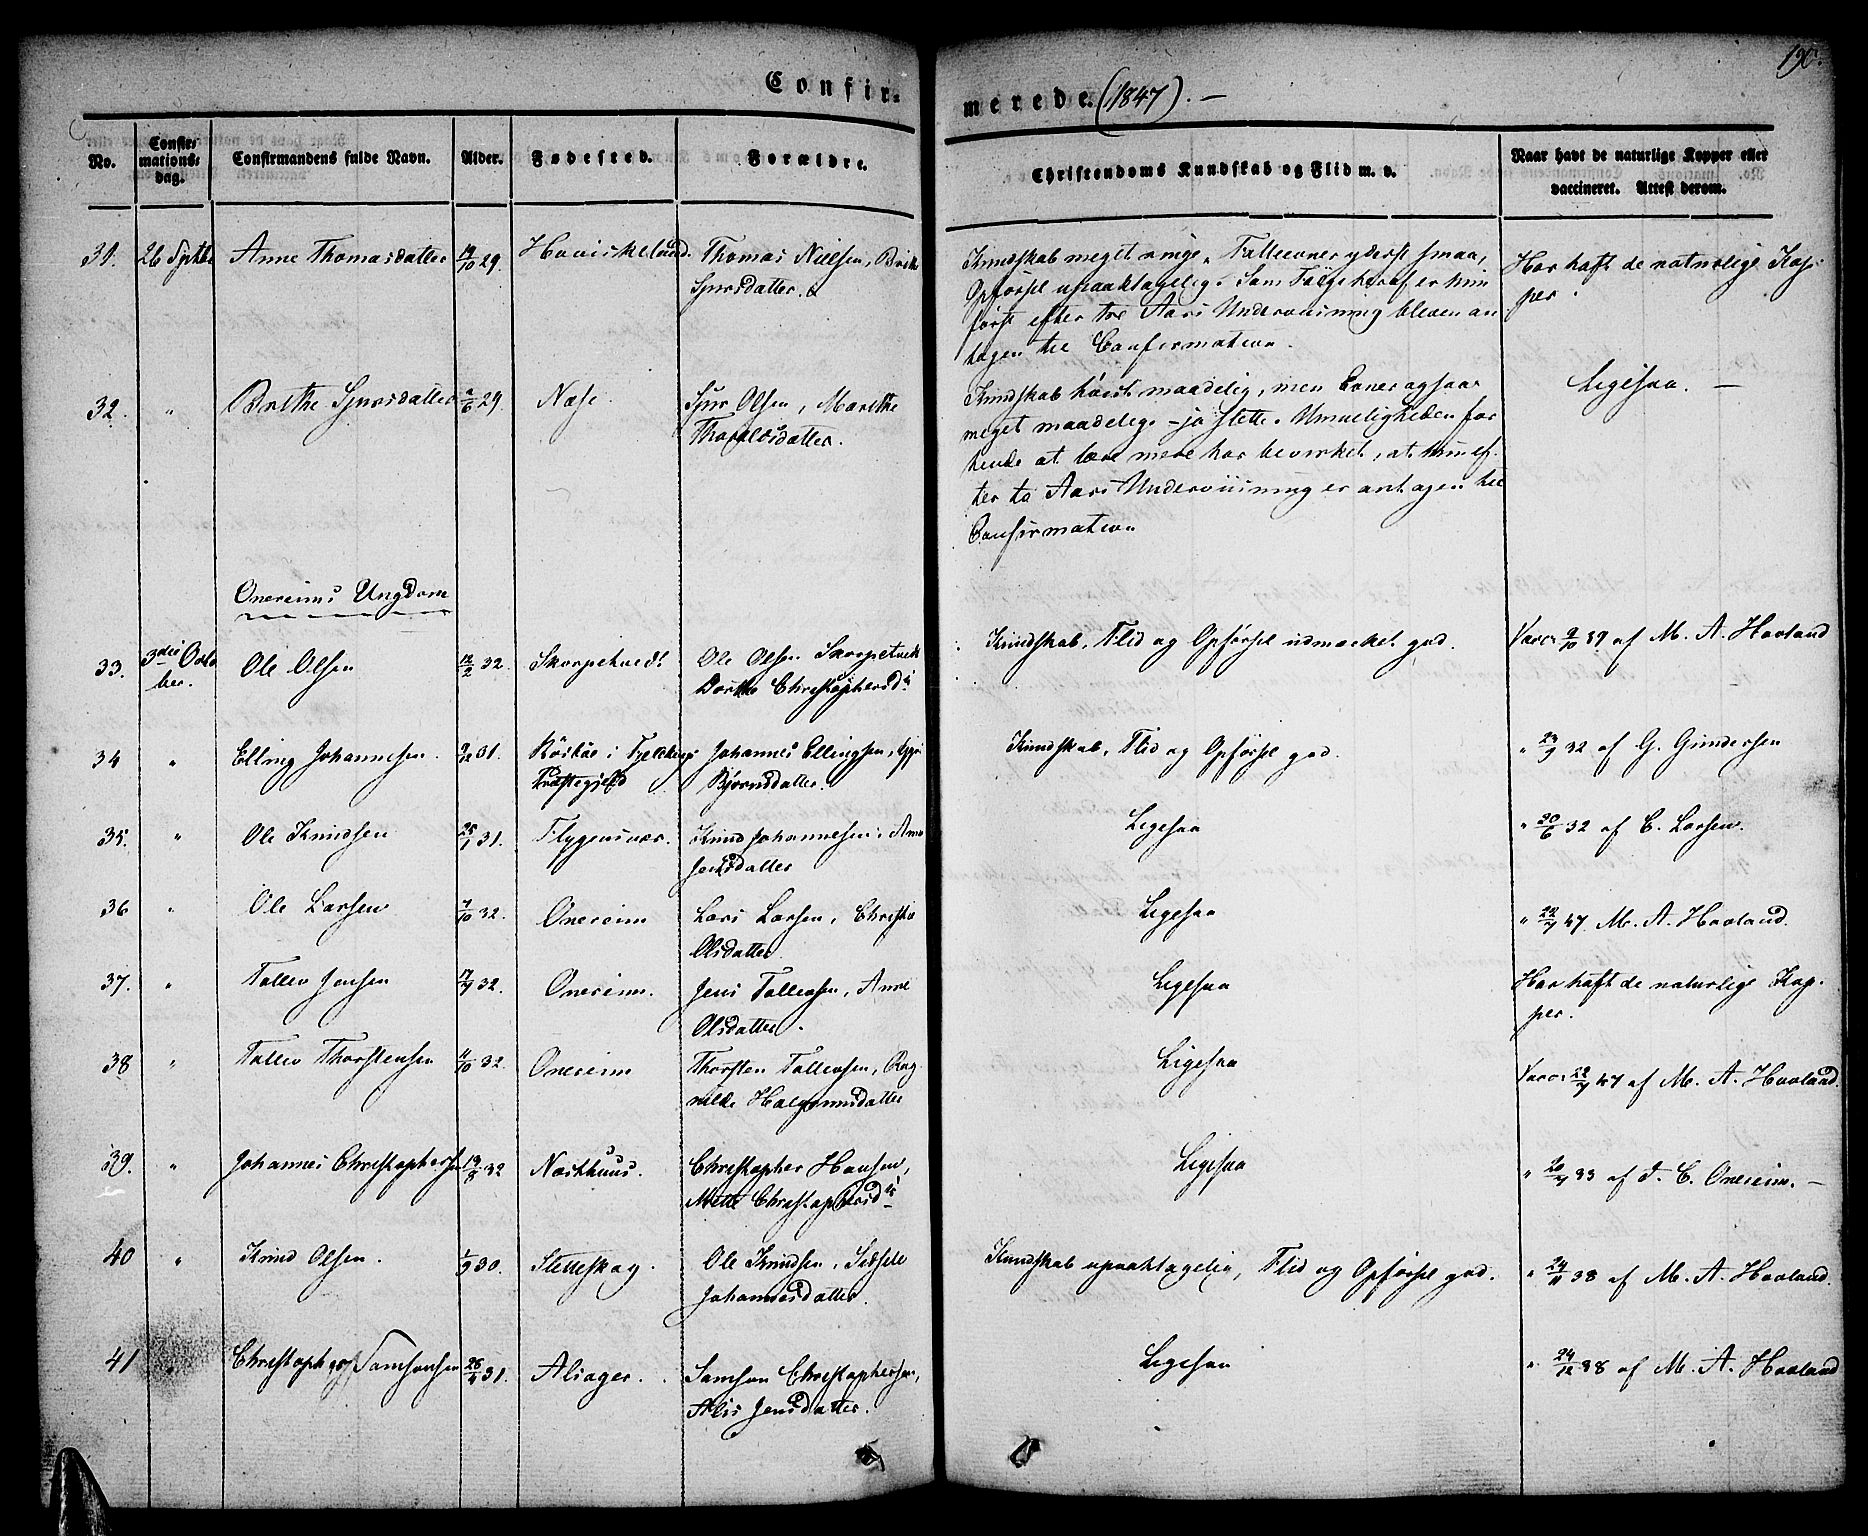 190.
Confir- merede (1847). —
No.
Confirmationsdag.
Confirmandens fulde Navn.
Alder.
Fødested.
Forældre.
Christendoms Kundskab og Flid m. v.
Naar havt de naturlige Kopper eller vaccineret. Attest derom.
31. 26 Septbr Anne Thomasdatter 29. Thomas Nielsen,
Sjursdatter.
Kundskab meget ringe, Fatteevner yderst smaa,
Opførsel upaaklagelig. Som Følge heraf er hun
først efter tre Aars Underviisning bleven an
tagen til Confirmation.
Har haft de naturlige Kop-
per.
32. " Brithe Sjursdatter 29 Næse. Sjur Olsen, Marithe
Thoraldsdatter.
Kundskab høist maadelig, men Evner ogsaa
meget maadelig - ja slette. Umueligheden for
hende at lære mere har bevirket, at hun ef-
ter to Aars Underviisning er antagen til
Confirmation.
Ligesaa. —
Onereims Ungdom
33. 3die Octo
ber. Ole Olsen 12/2 32. Skorpetvedt Ole Olsen Skorpetvedt
Dorthe Christophersdr
Kundskab, Flid og Opførsel udmærket god.
Vacc: 9/10 37 af M. A. Havland
34 " Elling Johannesen. 9/12 31. i
Præstegjeld Johannes Ellingsen,
Bjørnsdatter.
Kundskab, Flid og Opførsel god.
" 23/9 32 af G. Gundersen
35. " Ole Knudsen 25/7 31. Flygensvær. Knud Johannesen, Anna
Jensdatter
Ligesaa
" 20/6 32 af C. Larsen.
36 " Ole Larsen 7/10 32. Onereim Lars Larsen, Christie
Olsdatter.
Ligesaa
" 22/7 47. M. A. Havland.
37. " Tollev Jensen 17/7 32. Onereim. Jens Tollevsen, Anne
Olsdatter.
Ligesaa
Har haft de naturlige Kop-
per.
38 " Tollev Thorstensen 11/10 32. Onereim Thorsten Tollevsen, Rag
nilde Halgrimsdatter
Ligesaa
Vacc: 22/7 47 af M. A. Havland.
39. " Johannes Christophersen 19/8 32 Northuus. Christopher Hansen,
Mette Christophersdr
Ligesaa
" 33 af T. C. Onereim. —
40 " Knud Olsen. 1/9 30. Sletteskog. Ole Knudsen, Sidsele
Johannesdatter.
Kundskab upaaklagelig, Flid og Opførsel god.
" 24/11 38 af M. A. Havland.
41 " Christopher Samsonsen 31. Alsager. Samson Christophersen,
Alis Jensdatter.
Ligesaa
" 24/12 38 af M. A. Havland